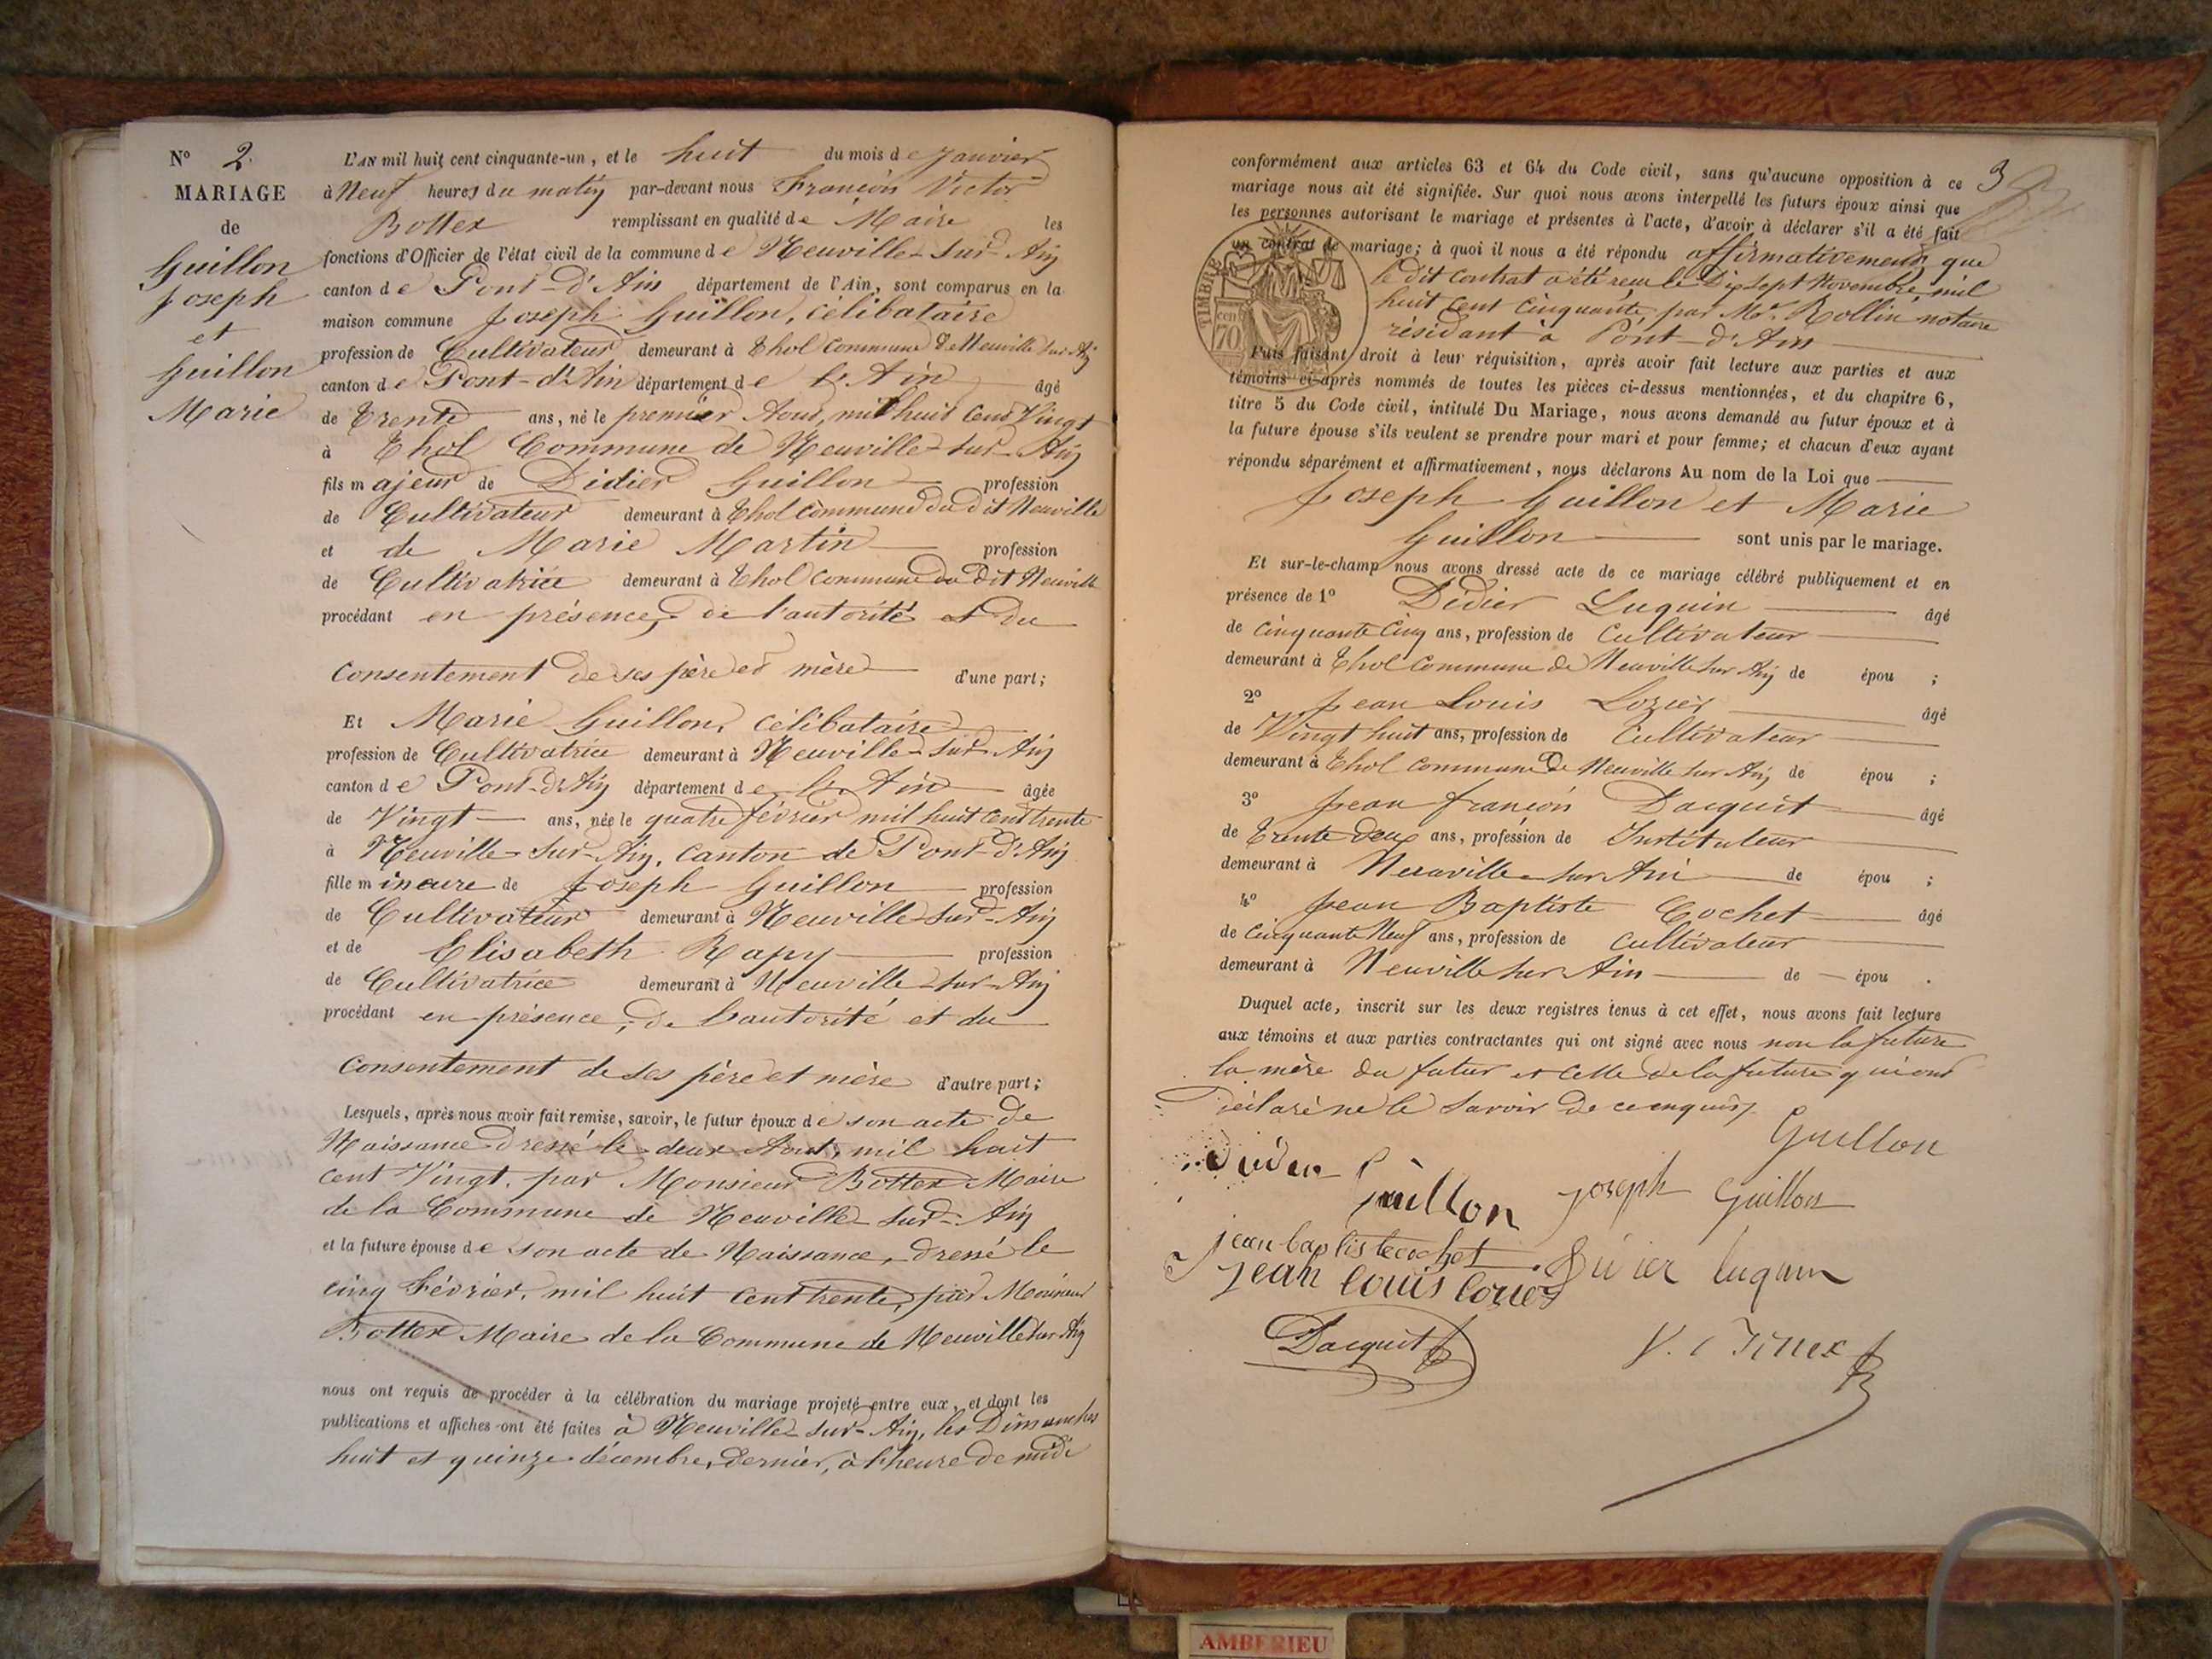 N° 2.
MARIAGE
de
Guillon
Joseph
et
Guillon
Marie
L'AN mil huit cent cinquante-un, et le huit du mois de Janvier
à Neuf heures du matin par-devant nous François Victor
Bottex remplissant en qualité de Maire les
fonctions d'Officier de l'état civil de la commune de Neuville-sur-Ain
canton de Pont-d'Ain département de l'Ain, sont comparus en la
maison commune Joseph Guillon, célibataire
profession de Cultivateur demeurant à Thol Commune de Neuville sur Ain
canton de Pont-d'Ain département de l'Ain âgé
de Trente ans, né le premier Aout, mil huit cent Vingt
à Thol Commune de Neuville-sur-Ain
fils majeur de Didier Guillon profession
de Cultivateur demeurant à Thol commune du dit Neuville
et de Marie Martin profession
de Cultivatrice demeurant à Thol commune du dit Neuville
procédant en présence, de l'autorité et du
Consentement de ses père et mère d'une part;
Et Marie Guillon, célibataire
profession de Cultivatrice demeurant à Neuville-sur-Ain
canton de Pont-d'Ain département de l'Ain âgée
de Vingt ans, née le quatre février mil huit cent trente
à Neuville-sur-Ain, Canton de Pont-d'Ain
fille mineure de Joseph Guillon profession
de Cultivateur demeurant à Neuville-sur-Ain
et de Elisabeth Rapy profession
de Cultivatrice demeurant à Neuville-sur-Ain
procédant en présence, de l'autorité et du
Consentement de ses père et mère d'autre part;
Lesquels, après nous avoir fait remise, savoir, le futur époux de son acte de
Naissance dressé le deux Aout, mil huit
cent Vingt, par Monsieur Bottex Maire
de la Commune de Neuville-sur-Ain
et la future épouse de son acte de Naissance, dressé le
cinq Février, mil huit cent trente, par Monsieur
Bottex Maire de la Commune de Neuville sur Ain
nous ont requis de procéder à la célébration du mariage projeté entre eux, et dont les
publications et affiches ont été faites à Neuville-sur-Ain, les Dimanches
huit et quinze décembre, dernier, à l'heure de midi
3
conformément aux articles 63 et 64 du Code civil, sans qu'aucune opposition à ce
mariage nous ait été signifiée. Sur quoi nous avons interpellé les futurs époux ainsi que
les personnes autorisant le mariage et présentes à l'acte, d'avoir à déclarer s'il a été fait
un contrat de mariage; à quoi il nous a été répondu affirmativement, que
le dit contrat a été reçu le Dix sept Novembre mil
huit cent cinquante, par Mr. Rollin notaire
résidant à Pont-d'Ain
TIMBRE
70 cen
Puis faisant droit à leur réquisition, après avoir fait lecture aux parties et aux
témoins ci-après nommés de toutes les pièces ci-dessus mentionnées, et du chapitre 6,
titre 5 du Code civil, intitulé Du Mariage, nous avons demandé au futur époux et à
la future épouse s'ils veulent se prendre pour mari et pour femme; et chacun d'eux ayant
répondu séparément et affirmativement, nous déclarons Au nom de la Loi que
Joseph Guillon et Marie
Guillon sont unis par le mariage.
Et sur-le-champ nous avons dressé acte de ce mariage célébré publiquement et en
présence de 1° Didier Luquin âgé
de cinquante cinq ans, profession de Cultivateur
demeurant à Thol Commune de Neuville sur Ain de épou ;
2° Jean Louis Lozier âgé
de Vingt huit ans, profession de Cultivateur
demeurant à Thol Commune de Neuville sur Ain de épou ;
3° Jean François Dacquit âgé
de Trente deux ans, profession de Instituteur
demeurant à Neuville-sur Ain de épou ;
4° Jean Baptiste Cochet âgé
de cinquante Neuf ans, profession de Cultivateur
demeurant à Neuville sur Ain de épou .
Duquel acte, inscrit sur les deux registres tenus à cet effet, nous avons fait lecture
aux témoins et aux parties contractantes qui ont signé avec nous non la future
la mère du futur et celle de la future qui ont
déclaré ne le savoir de ce enquis.
Guillon
Guillon Joseph Guillon
jean baptiste cochet Luquin
jean louis lozier
Dacquit
AMBERIEU